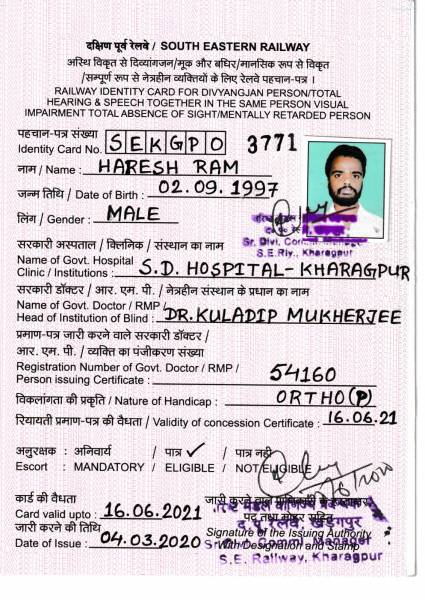 दक्षिण पूर्व रेलवे / SOUTH EASTERN RAILWAY
अस्थि विकृत से दिव्यांगजन/मूक और बधिर/मानसिक रूप से विकृत
/सम्पूर्ण रूप से नेत्रहीन व्यक्तियों के लिए रेलवे पहचान-पत्र ।
RAILWAY IDENTITY CARD FOR DIVYANGJAN PERSON/TOTAL
HEARING & SPEECH TOGETHER IN THE SAME PERSON VISUAL
IMPAIRMENT TOTAL ABSENCE OF SIGHT/MENTALLY RETARDED PERSON
पहचान-पत्र संख्या
Identity Card No. SEKGPO 3771
नाम / Name : HARESH RAM
जन्म तिथि / Date of Birth : 02.09.1997
लिंग / Gender : MALE
Sr. Divl. Comml. Manager
S.E.Rly., Kharagpur
सरकारी अस्पताल / क्लिनिक / संस्थान का नाम
Name of Govt. Hospital
Clinic / Institutions : S.D. HOSPITAL-KHARAGPUR
सरकारी डॉक्टर / आर. एम. पी. / नेत्रहीन संस्थान के प्रधान का नाम
Name of Govt. Doctor / RMP /
Head of Institution of Blind : DR.KULADIP MUKHERJEE
प्रमाण-पत्र जारी करने वाले सरकारी डॉक्टर /
आर. एम. पी. / व्यक्ति का पंजीकरण संख्या
Registration Number of Govt. Doctor / RMP /
Person issuing Certificate : 54160
विकलांगता की प्रकृति / Nature of Handicap : ORTHO(P)
रियायती प्रमाण-पत्र की वैधता / Validity of concession Certificate : 16.06.21
अनुरक्षक : अनिवार्य / पात्र ✓ / पात्र नहीं
Escort : MANDATORY / ELIGIBLE / NOT ELIGIBLE
कार्ड की वैधता
Card valid upto : 16.06.2021
जारी करने की तिथि
Date of Issue : 04.03.2020
जारी करने वाले प्राधिकारी के हस्ताक्षर
पद तथा मोहर सहित
द. पू. रेलवे, खड़गपुर
Signature of the Issuing Authority
With Designation and Stamp
Sr. Divl. Comml. Manager
S.E. Railway, Kharagpur